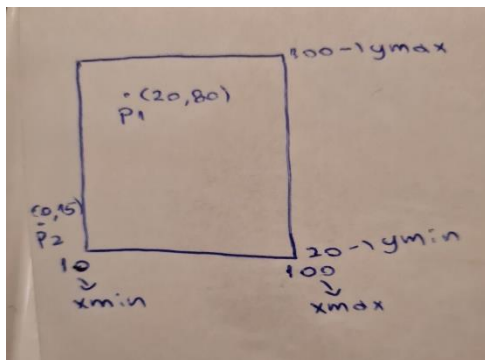 100→ymax
(20,80)
P1
(0,15)
P2
20→ymin
10
100
xmin
xmax